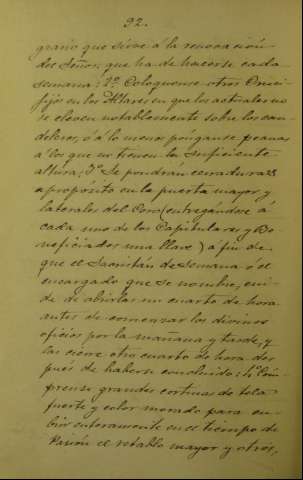 92.
grario que sirve á la renovación
del Señor, que ha de hacerse cada
semana: 2º Coloquense otros Cruci-
fijos en los Altares en que los actuales no
se eleven notablemente sobre los can-
deleros, ó á lo menos pónganse peanas
á los que no tienen la suficiente
altura; 3º Se pondran cerraduras
apropósito en la puerta mayor y
laterales del Coro (entregándose á
cada uno de los Capitulares y Be-
neficiados una llave) á fin de
que el Sacristán de Semana ó el
encargado que se nombre, cui-
de de abrirlas un cuarto de hora
antes de comenzar los divinos
oficios por la mañana y tarde, y
las cierre otro cuarto de hora des
pués de haberse concluido: 4º Cóm-
prense grandes cortinas de tela
fuerte y color morado para cu-
brir enteramente en el tiempo de
Pasión el retablo mayor y otros,